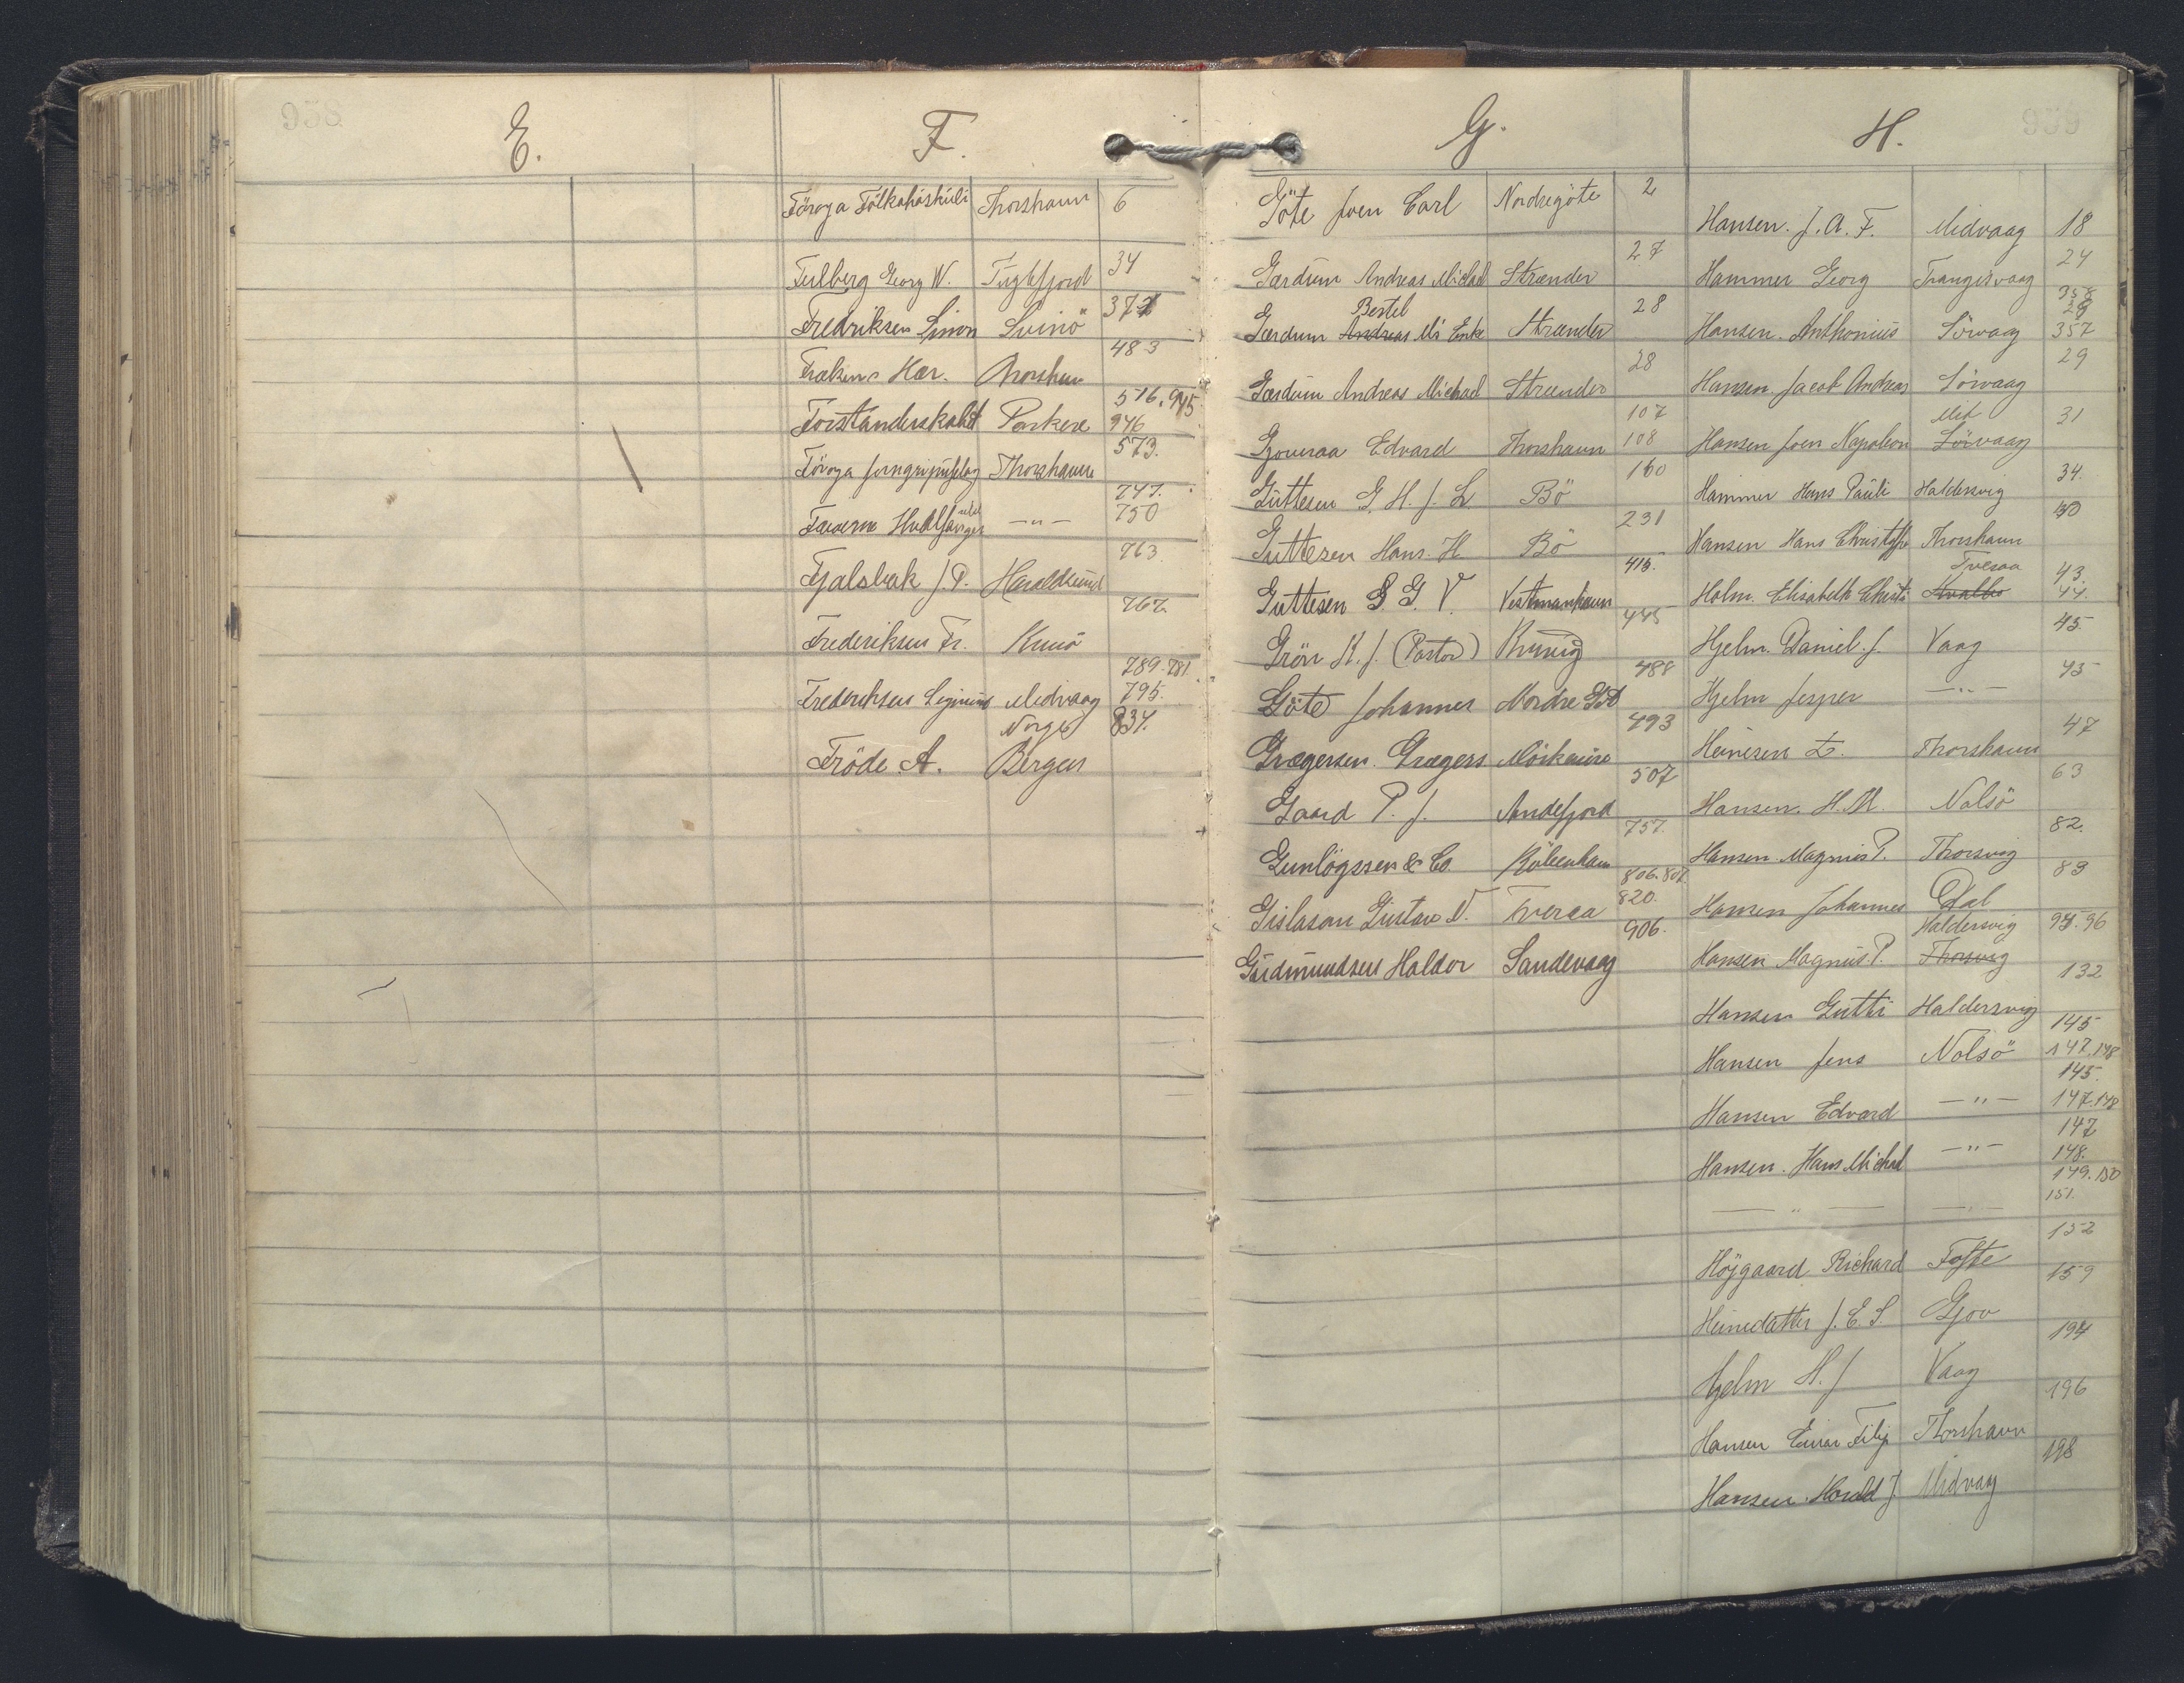 958
E.
F.
Föroya Fólkaháskúli Thorshavn 6
Fulberg Georg W. Fuglefjord 34
Fredriksen Simon Svinö 371
Frælsens Hær. Thorshavn 483
Forstanderskabet Porkere 516. 945
946
Föroya Thorshavn 573.
Færøerne 747.
750
—"—
Fjalsbak J. P. Haraldsund 763
Frederiksen Fr. Kunö 767.
Frederiksen Sigmund Midvaag 789. 781
795.
Fröde A. Norge Bergen 834.
G.
Göte Joen Carl Nordregöte 2
Gærdum Andreas Michael Strænder 27
Bertel
Gærdum Andreas Mi Enke Strænder 28
Gærdum Andreas Michael Strænder 28
Gjoveraa Edvard Thorshavn 107
108
Guttesen G. H. J. L. Bö 160
Guttesen Hans. H. Bö 231
Guttesen G. G. V. Vestmanhavn 415.
Grön K. J. (Pastor) Kunög 445
Göte Johannes Nordre Göte 488
Grægersen. Grægers Morkaure 493
Gaard P. J. Andefjord 507
Gunlögssen & Co. Köbenhavn 757.
Gislason Gustav V. Tveraa 806. 807
820.
Gudmundsen Haldor Sandevaag 906.
959
H.
Hansen. J. A. F. Midvaag 18
Hammer Georg Trangisvaag 24
Hansen. Anthonius Sörvaag 358
28
357
Hansen. Jacob Andreas Sörvaag 29
Mid
Hansen Joen Napoleon Sörvaag 31
Hammer Hans Pauli Haldersvig 34.
Hansen Hans Christoffer Thorshavn 40
Tveraa
Holm. Elisabeth Christi Hvalbø 43.
44.
Hjelm. Daniel. J. Vaag 45.
Hjelm Jesper —"— 45
Heinesen Z. Thorshavn 47
Hansen. H. M. Nolsö 63
Hansen. Magnus P. Thorsvig 82.
Hansen Johannes Dal 83
Haldersvig
Hansen Magnus P. Thorsvig 95. 96
Hansen Gutti Haldersvig 132
Hansen Jens Nolsö 145
147. 148
Hansen Edvard —"— 145.
147. 148
Hansen. Hans Michael —"— 147
148.
—"— —"— 149. 150
151.
Höjgaard Richard Tofte 152
Heinedatter J. E. S. Gjov 159
Hjelm H. J. Vaag 194
Hansen Einar Filip Thorshavn 196
Hansen. Harald J. Midvaag 198